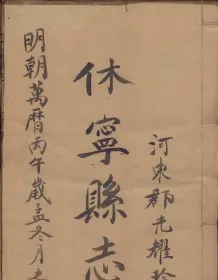 河東郡光耀
休寧縣志
明朝萬曆丙午歲孟冬月